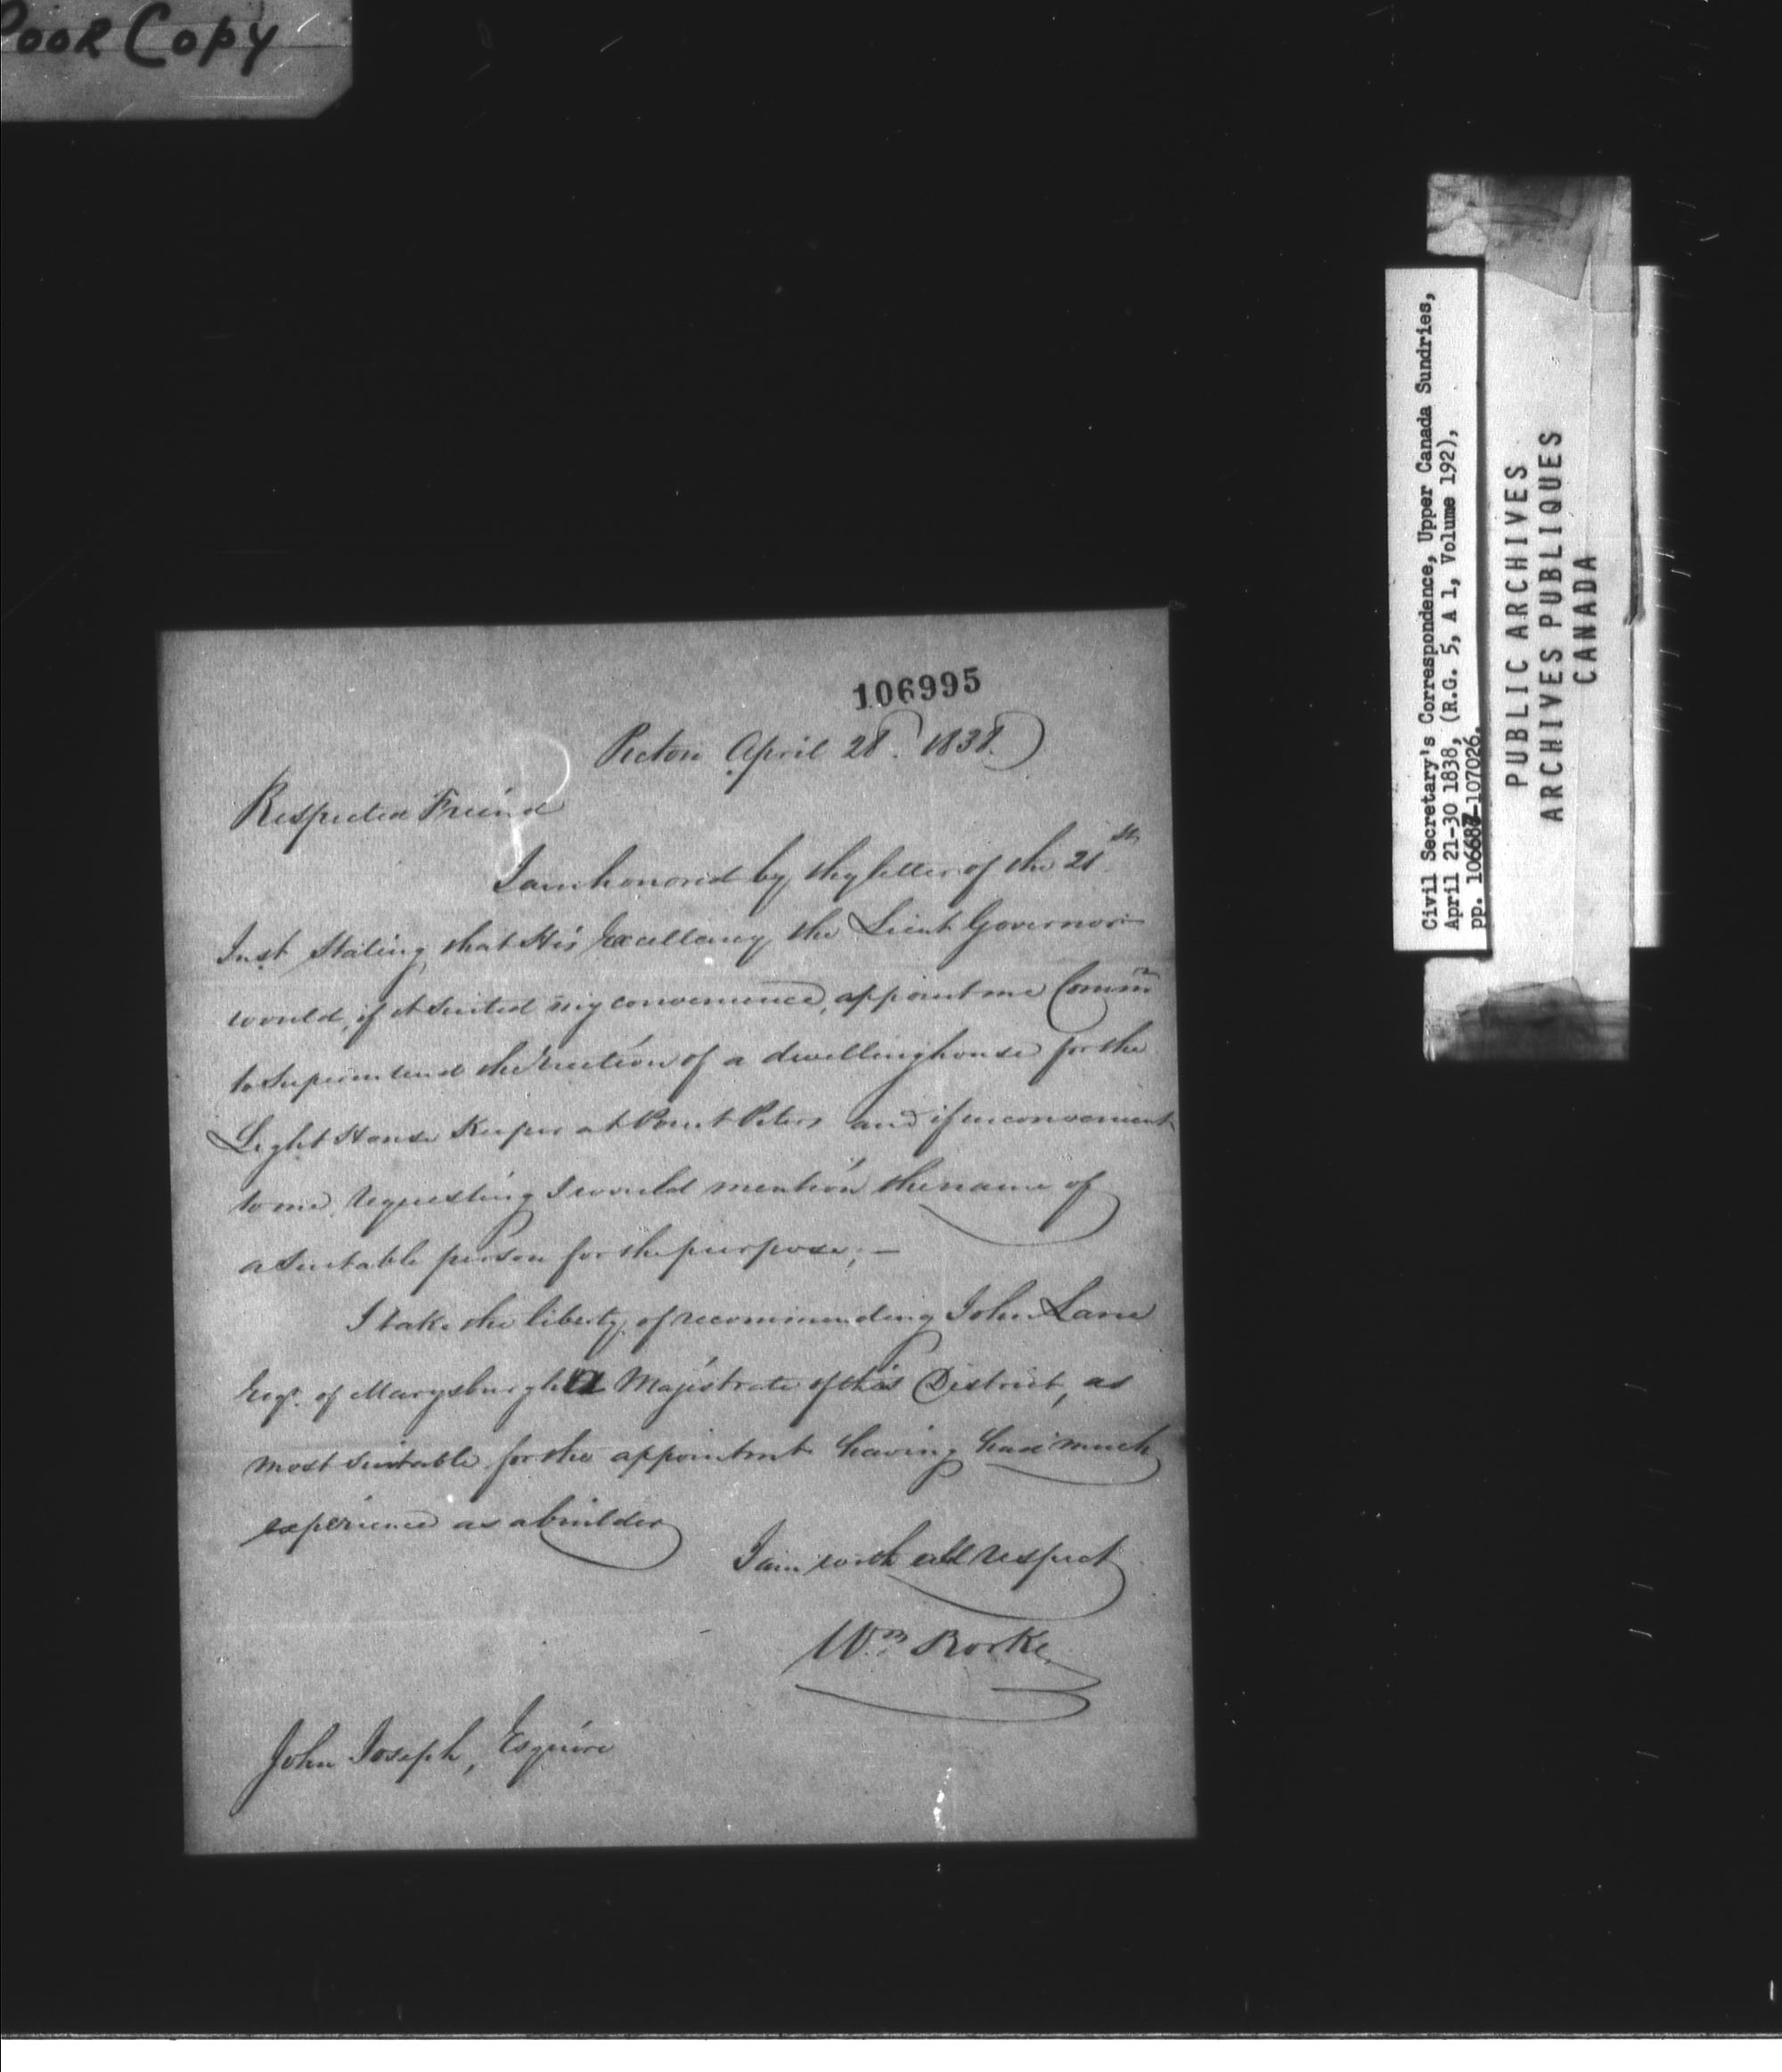 Poor Copy
106995
Picton April 28th. 1838.
Respected Friend
I am honored by thy letter of the 21st
Inst Stating that His Excellency the Lieut Governor
would, if it suited my convenience, appoint me Commr
to superintend the Erection of a dwelling house for the
Light House Keeper at Point Peters and if inconvenient
to me, requesting I would mention the name of
a suitable person for the purpose; —
I take the liberty of recommending John Lane
Esqr. of Marysburgh a Majistrate of this District, as
most suitable for the appointmt having had much
experience as a builder
I am with all respect
Wm Rorke
John Joseph, Esquire
Civil Secretary's Correspondence, Upper Canada Sundries,
April 21-30 1838, (R.G. 5, A 1, Volume 192),
pp. 106687-107026.
PUBLIC ARCHIVES
ARCHIVES PUBLIQUES
CANADA